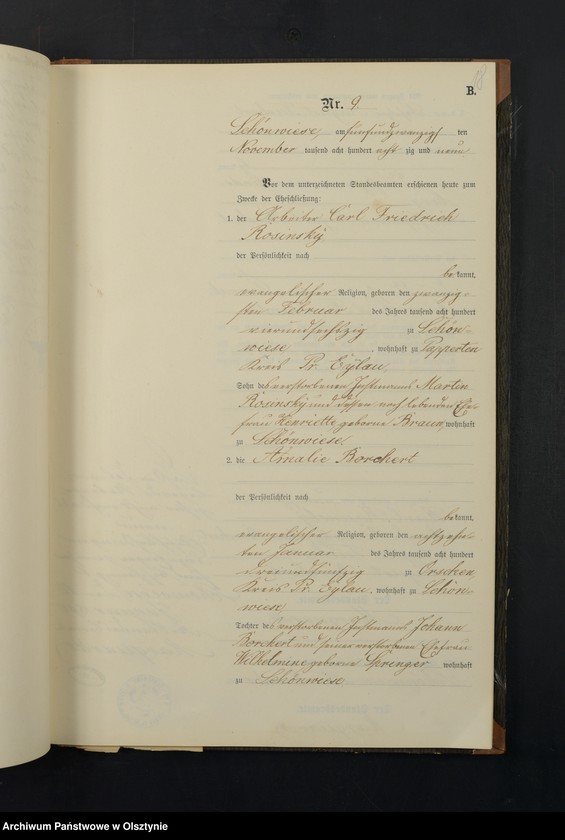 B.
Nr. 9.
Schönwiese, am fünfundzwanzigsten
November tausend acht hundert acht zig und neun
Vor dem unterzeichneten Standesbeamten erschienen heute zum
Zwecke der Eheschließung:
1. der Arbeiter Carl Friedrich
Rosinsky
der Persönlichkeit nach
be kannt,
evangelischer Religion, geboren den zwanzig-
sten Februar des Jahres tausend acht hundert
vierundsechszig zu Schön-
wiese, wohnhaft zu Papperten
Kreis Pr. Eylau
Sohn des verstorbenen Instmanns Martin
Rosinsky und dessen noch lebenden Ehe-
frau Henriette geborne Braun, wohnhaft
zu Schönwiese
2. die Amalie Borchert
der Persönlichkeit nach
be kannt,
evangelischer Religion, geboren den achtzehn-
ten Januar des Jahres tausend acht hundert
zu Orschen
Kreis Pr. Eylau, wohnhaft zu Schön-
wiese
Tochter des verstorbenen Instmanns Johann
Borchert und seiner verstorbenen Ehefrau
Wilhelmine geborne Sprenger wohnhaft
zu Schönwiese
Archiwum Państwowe w Olsztynie